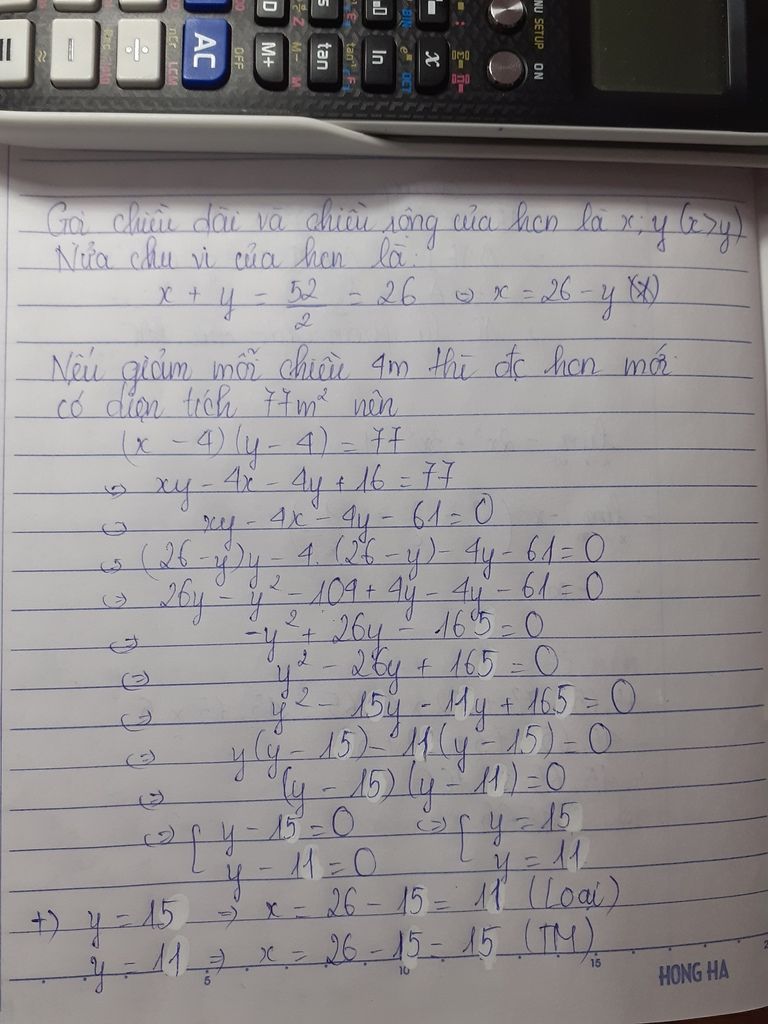 SETUP ON
AC OFF M+ tan ln x
Gọi chiều dài và chiều rộng của hcn là x; y (x>y)
Nửa chu vi của hcn là:
x + y = 52/2 = 26 => x = 26 - y (*)
Nếu giảm mỗi chiều 4m thì đc hcn mới
có diện tích 77m² nên
(x - 4)(y - 4) = 77
<=> xy - 4x - 4y + 16 = 77
<=> xy - 4x - 4y - 61 = 0
<=> (26 - y)y - 4.(26 - y) - 4y - 61 = 0
<=> 26y - y² - 104 + 4y - 4y - 61 = 0
<=> -y² + 26y - 165 = 0
<=> y² - 26y + 165 = 0
<=> y² - 15y - 11y + 165 = 0
<=> y(y - 15) - 11(y - 15) = 0
<=> (y - 15)(y - 11) = 0
<=> { y - 15 = 0 <=> { y = 15
y - 11 = 0 y = 11
+) y = 15 => x = 26 - 15 = 11 (Loại)
y = 11 => x = 26 - 15 = 15 (TM)
5 10 15
HONG HA